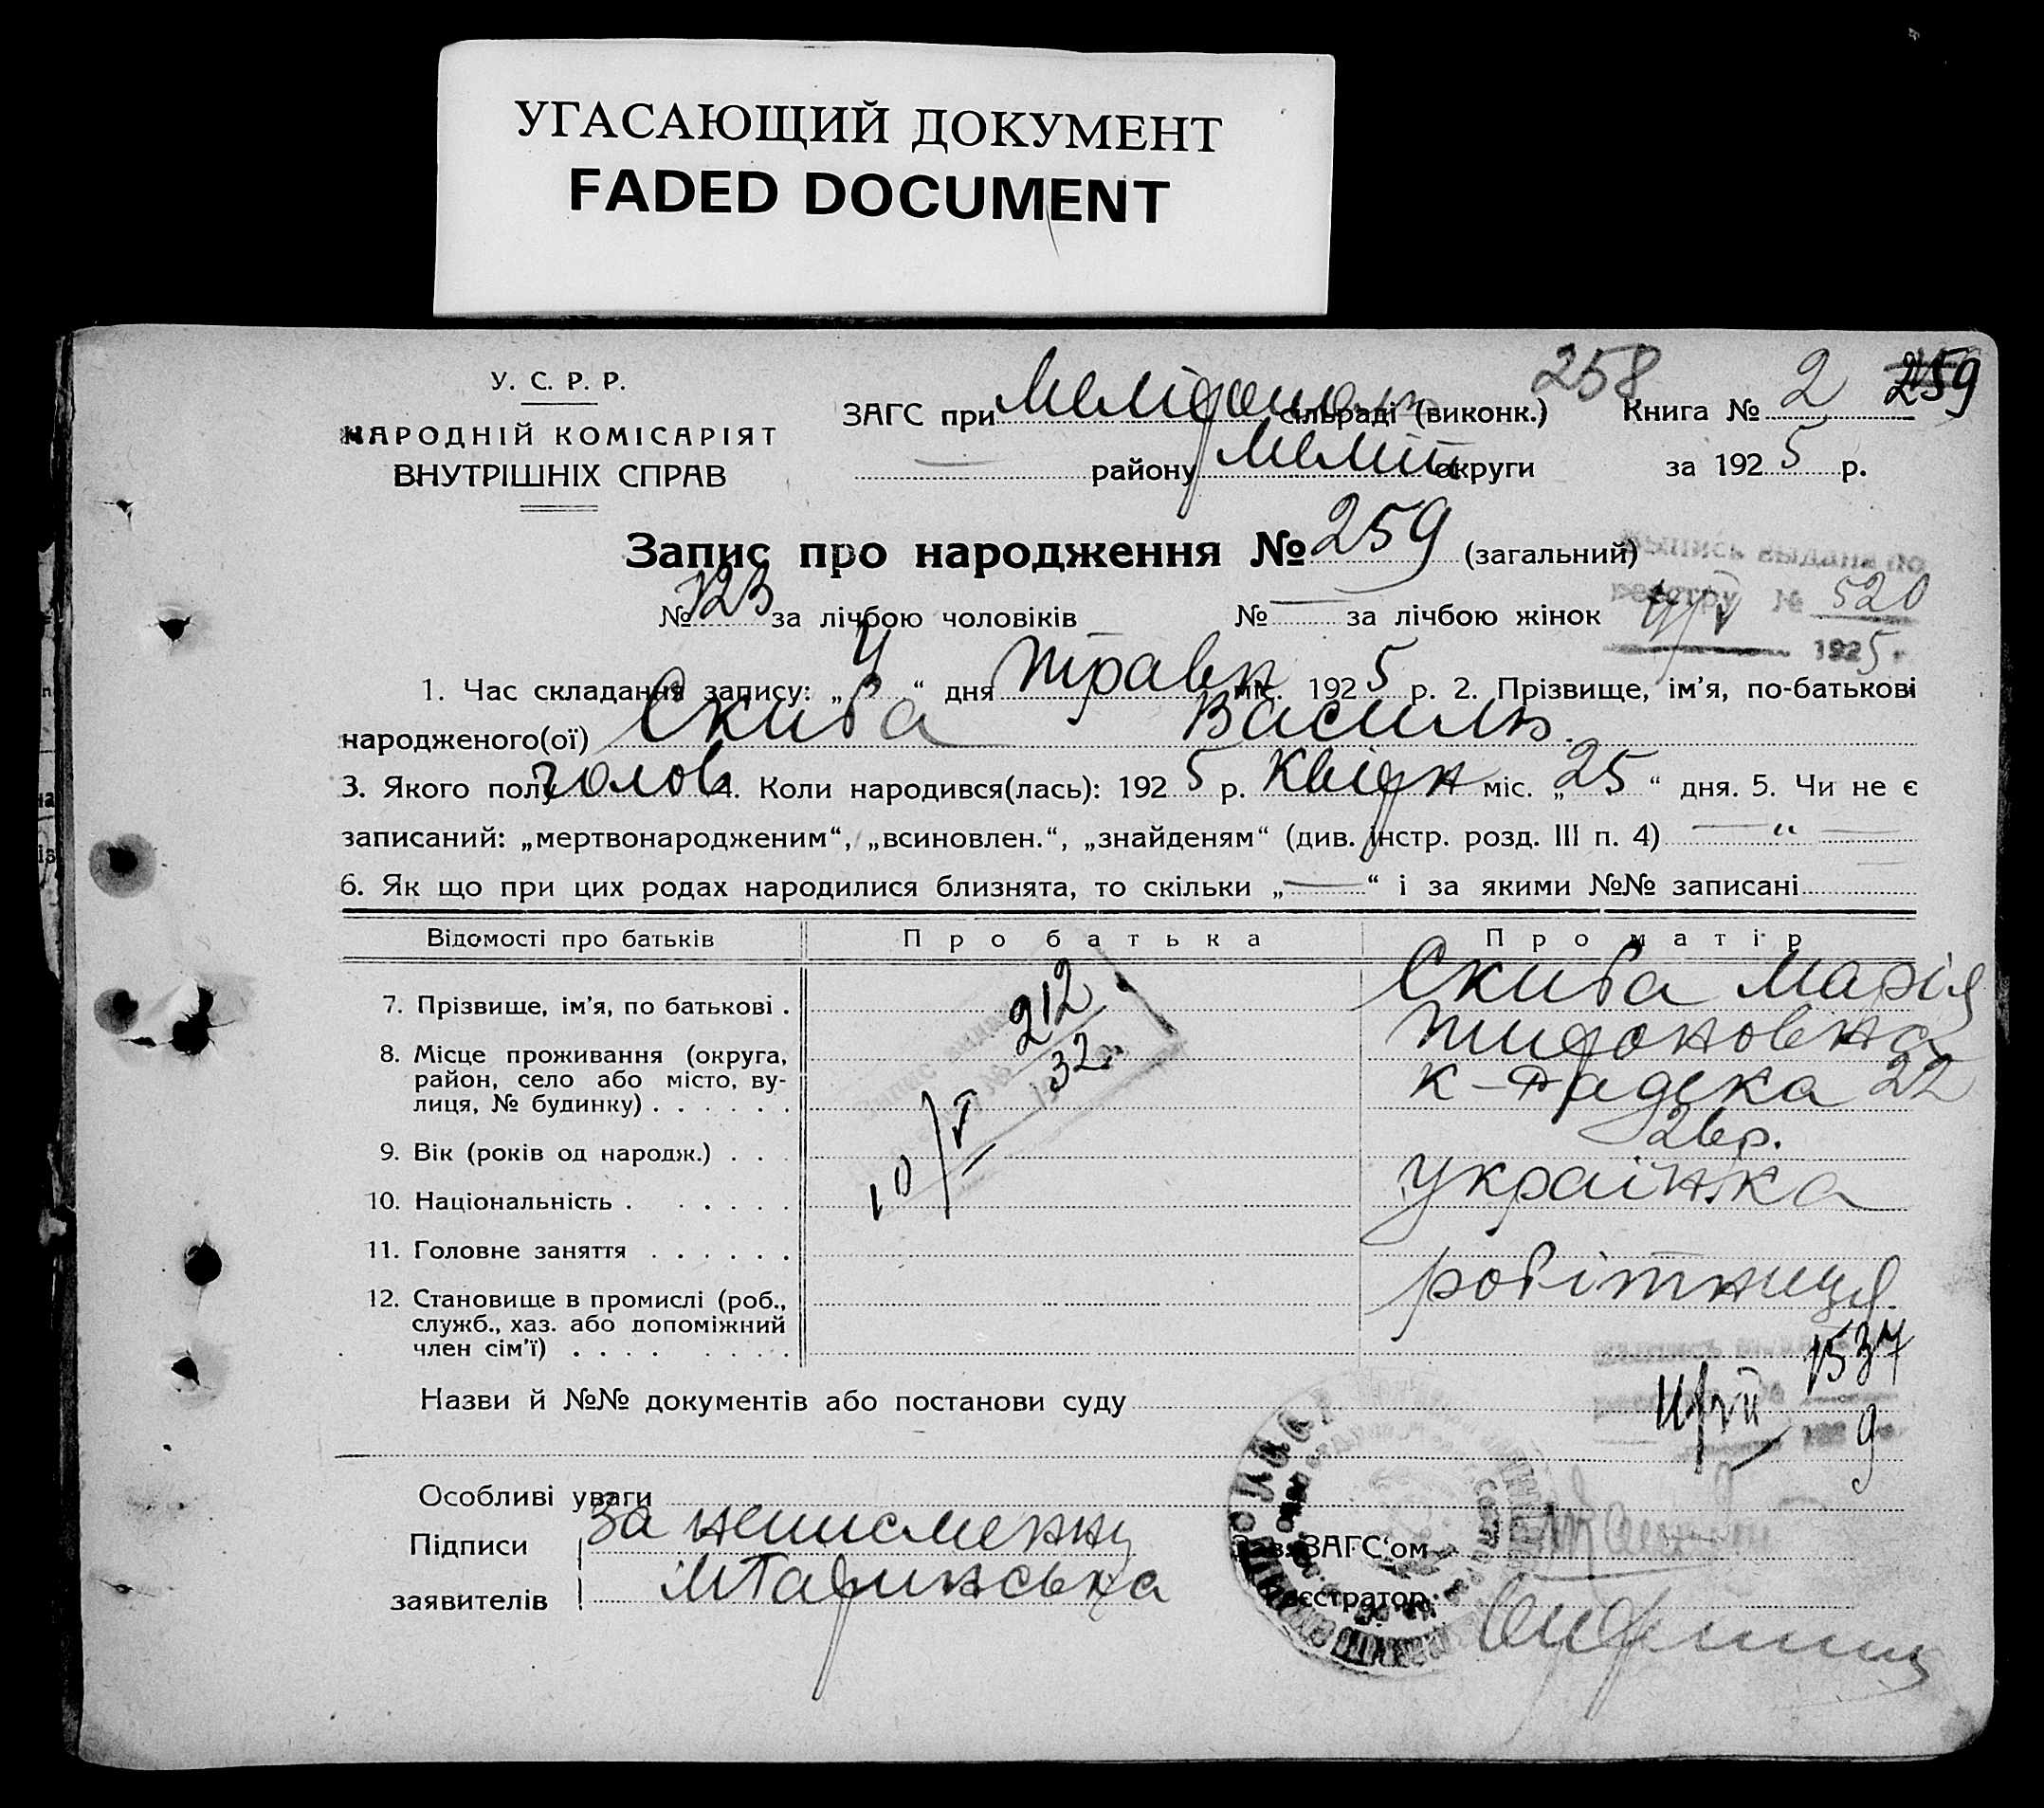 УГАСАЮЩИЙ ДОКУМЕНТ
FADED DOCUMENT
У. С. Р. Р.
НАРОДНІЙ КОМІСАРІЯТ
ВНУТРІШНІХ СПРАВ
258
ЗАГС при Мелітополь сільраді (виконк.) Книга № 2 259
— району Меліт округи за 1925 р.
Запис про народження № 259 (загальний)
№ 123 за лічбою чоловіків № — за лічбою жінок
выпись выдана по
реестру № 520
1925 г.
1. Час складання запису: „ “ дня травн міс. 1925 р. 2. Прізвище, ім’я, по-батькові
народженого(ої) Скиба Василь
3. Якого полу чолов 4. Коли народився(лась): 1925 р. Квітн міс. „25“ дня. 5. Чи не є
записаний: „мертвонародженим“, „всиновлен.“, „знайденям“ (див. інстр. розд. III п. 4) — “ —
6. Як що при цих родах народилися близнята, то скільки „—“ і за якими №№ записані
Відомості про батьків Про батька Про матір
7. Прізвище, ім’я, по батькові . Скиба Марія
8. Місце проживання (округа,
район, село або місто, ву-
лиця, № будинку) . . . . . . 22
9. Вік (років од народж.) . . . 26 р.
10. Національність . . . . . . українка
11. Головне заняття . . . . . .
12. Становище в промислі (роб., робітниця
служб., хаз. або допоміжний
член сім’ї) . . . . . . . .
212
32 г.
10/V
1537
9
Назви й №№ документів або постанови суду
Особливі уваги
Підписи За неписменну
Зав. ЗАГС‘ом
заявителів
Реєстратор